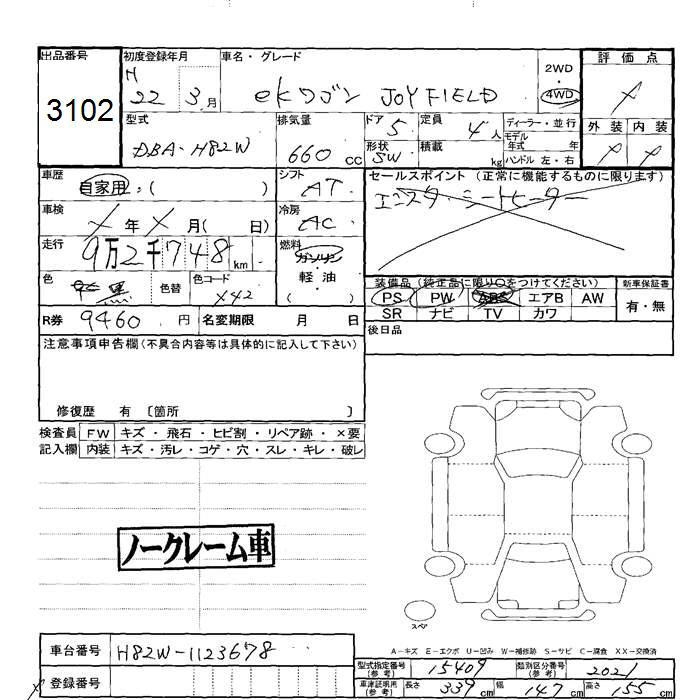 出品番号 初度登録年月 車名・グレード 2WD 評価点
3102 H 22 3月 eKワゴン JOY FIELD 4WD
型式 排気量 ドア 定員 ディーラー・並行 外装 内装
DBA-H82W 660cc 5 4人 モデル年式 年
形状 SW 積載 kg ハンドル 左・右
車歴 自家用・( ) シフト AT セールスポイント (正常に機能するものに限ります)
車検 年 月( 日) 冷房 AC
走行 9万2千748km 燃料 ガソリン・軽油( )
色 黒 色替 色コード X42 装備品(純正品に限り○をつけてください) 新車保証書
PS PW ABS エアB AW 有・無
SR ナビ TV カワ
R券 9460円 名変期限 月 日 後日品
注意事項申告欄(不具合内容等は具体的に記入して下さい)
修復歴 有 〔箇所 〕
検査員 FW キズ・飛石・ヒビ割・リペア跡・×要
記入欄 内装 キズ・汚レ・コゲ・穴・スレ・キレ・破レ
ノークレーム車
スペア
A-キズ E-エクボ U-凹み W-補修跡 S-サビ C-腐食 XX-交換済
車台番号 H82W-1123678
登録番号
型式指定番号(参考) 15409 類別区分番号(参考) 2021
車庫証明用(参考) 長さ 339cm 幅 147cm 高さ 55cm